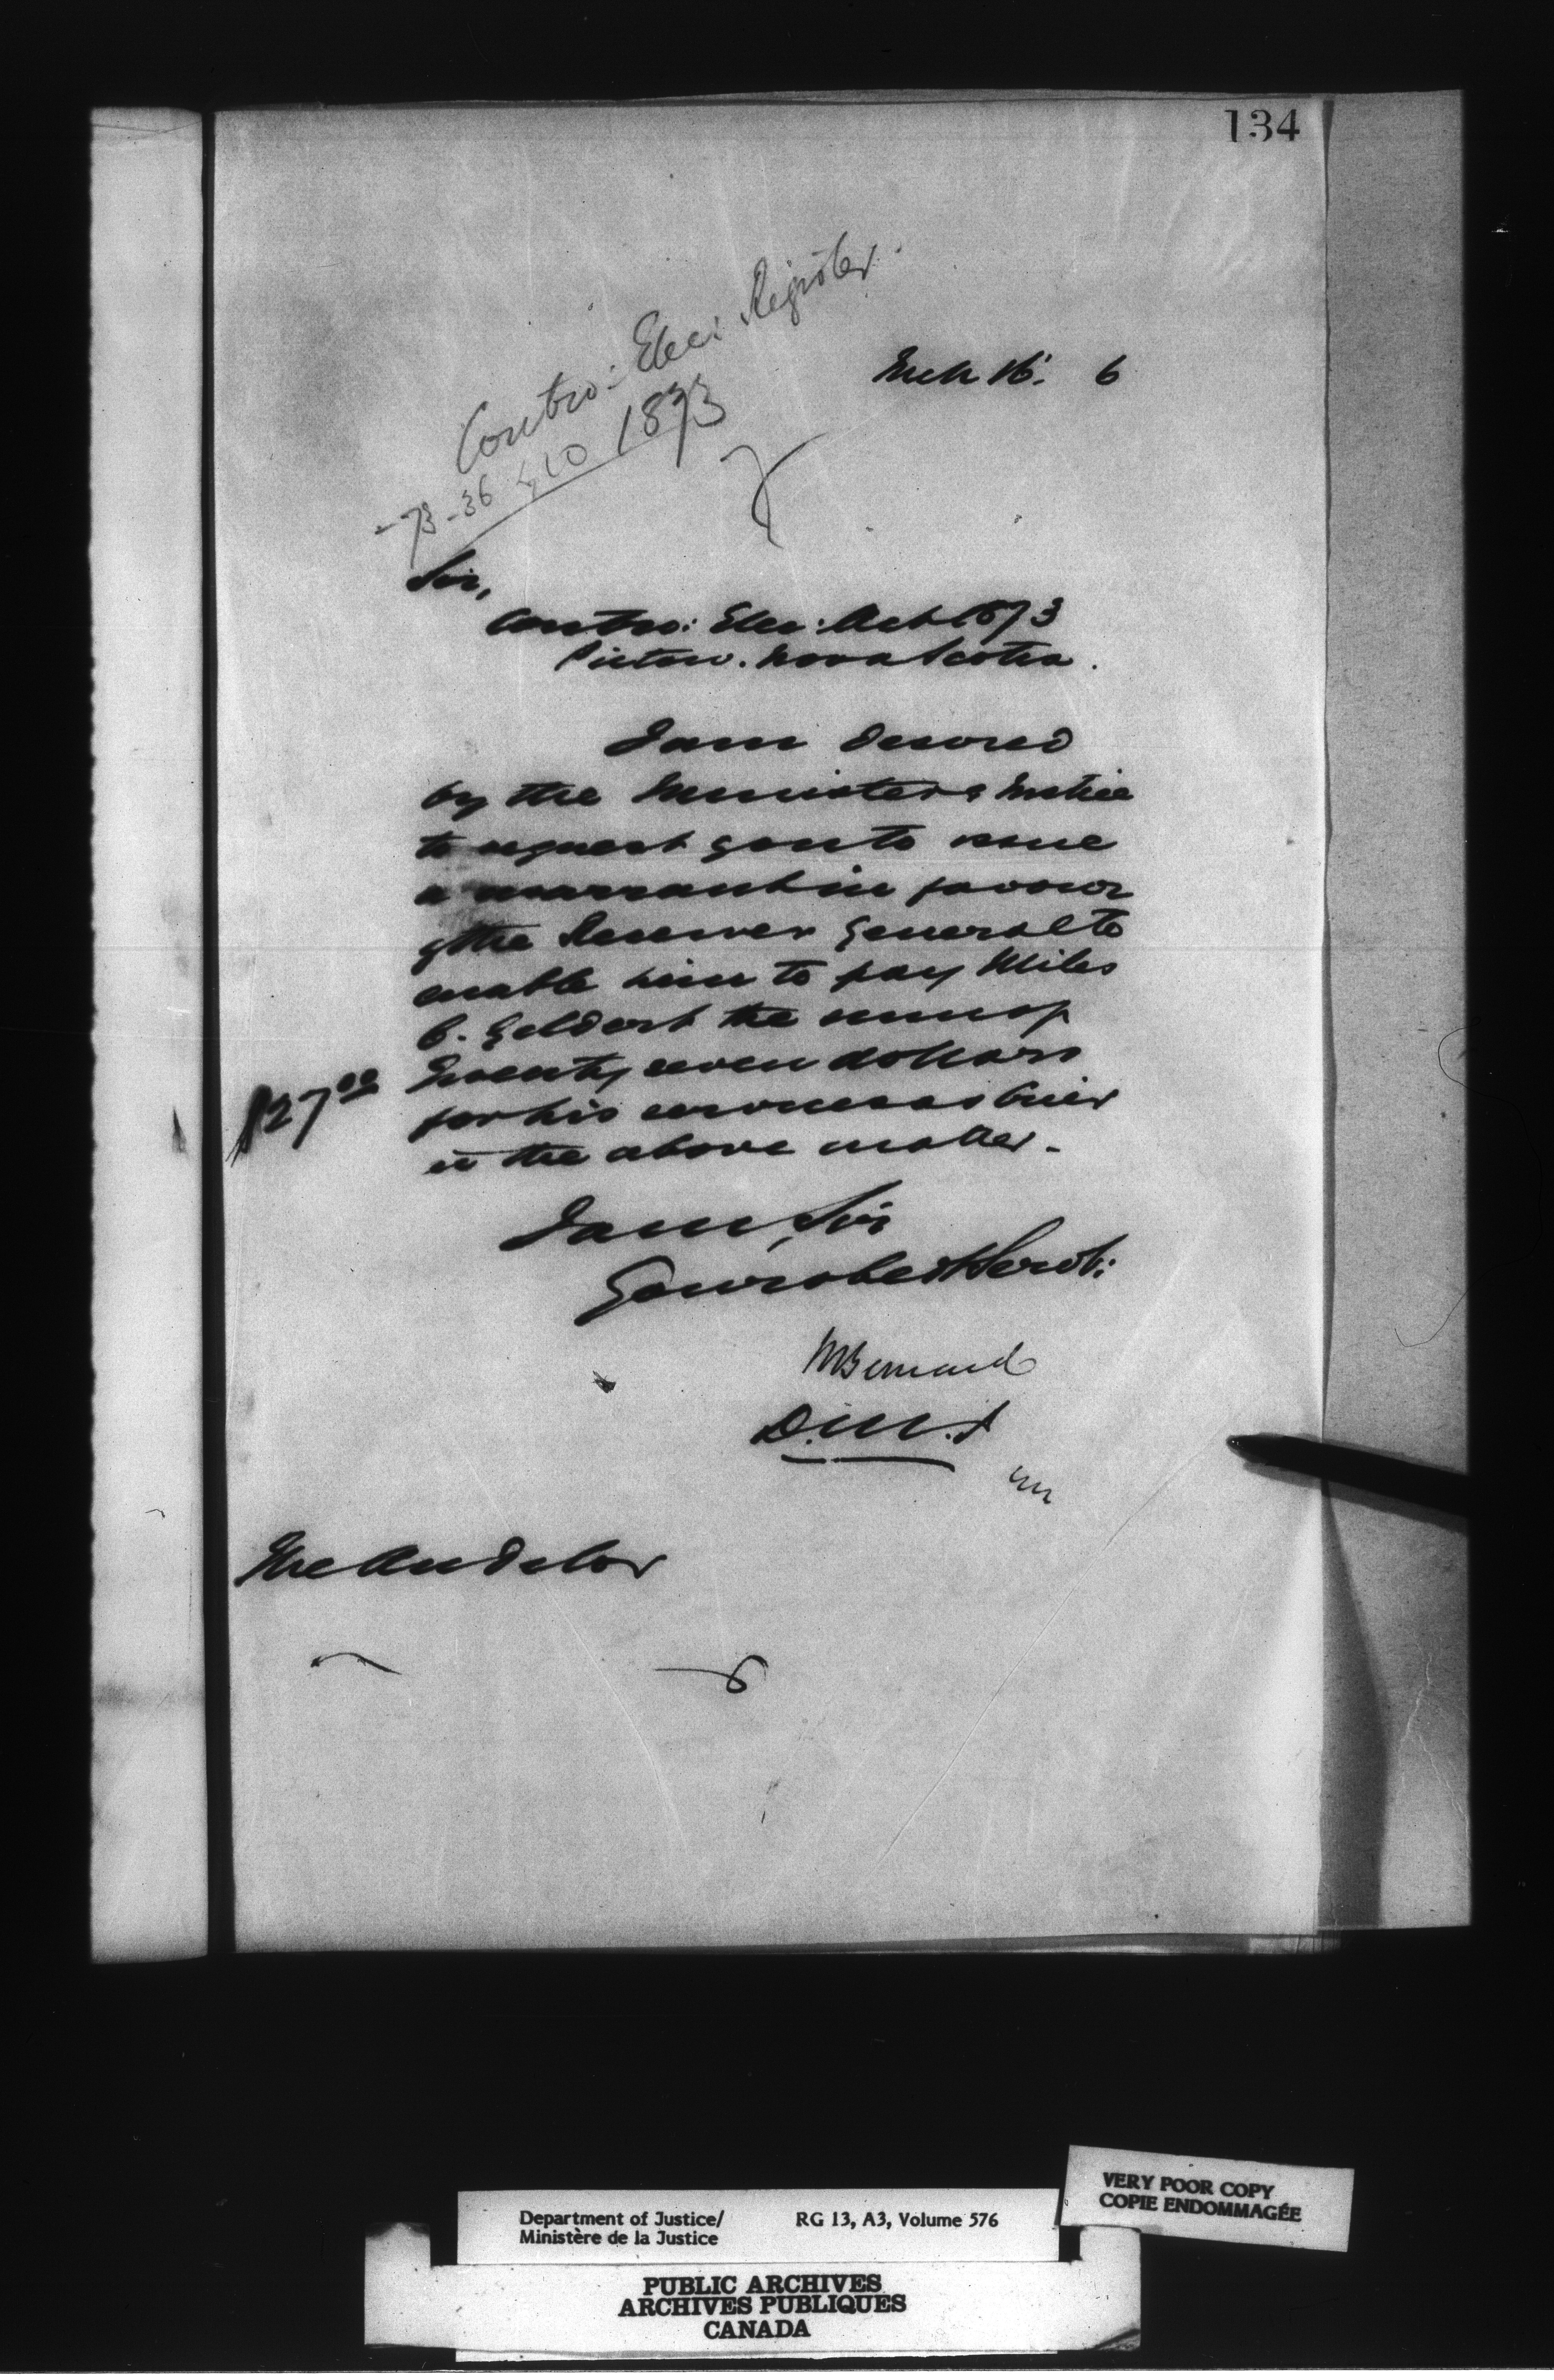 134
Contro: Elec: Register
1873
Mch 16. 6
-73-36 & 40
Sir,
Contro: Elec: Act 1873
Pictou. Nova Scotia.
I am desired
by the Minister of Justice
to request you to issue
a warrant in favour
of the Receiver General to
enable him to pay Miles
B. Geldert the sum of
Twenty seven dollars
$27.00
for his services as Crier
in the above matter.
I am, Sir
Your obedt Servt:
H Bernard
D.M.J
The Auditor
VERY POOR COPY
COPIE ENDOMMAGÉE
Department of Justice/ RG 13, A3, Volume 576
Ministère de la Justice
PUBLIC ARCHIVES
ARCHIVES PUBLIQUES
CANADA